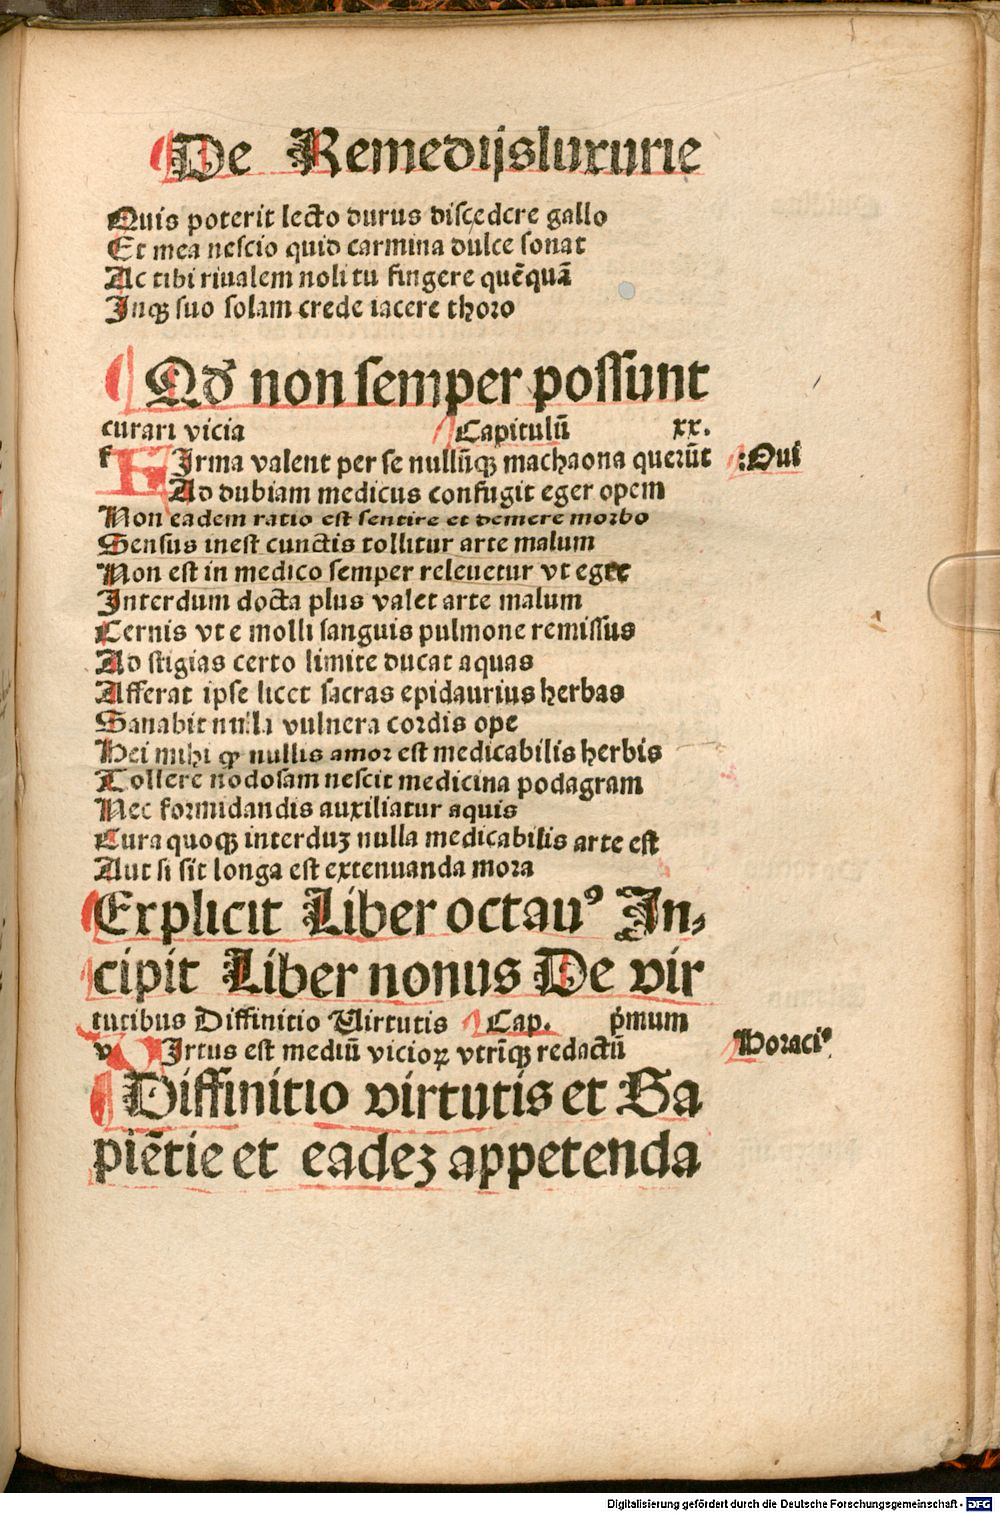 De Remedijsluxurie
Quis poterit lecto durus discedere gallo
Et mea nescio quid carmina dulce sonat
Ac tibi riualem noli tu fingere quēquā
Inqꝫ suo solam crede iacere thoro
Qd' non semper possunt
curari vicia Capitulū xx.
f FIrma valent per se nullūqꝫ machaona querūt :Oui
Ad dubiam medicus confugit eger opem
Non eadem ratio est sentire et demere morbo
Sensus inest cunctis tollitur arte malum
Non est in medico semper releuetur vt eger
Interdum docta plus valet arte malum
Cernis vt e molli sanguis pulmone remissus
Ad stigias certo limite ducat aquas
Afferat ipse licet sacras epidaurius herbas
Sanabit nulla vulnera cordis ope
Hei mihi qꝫ nullis amor est medicabilis herbis
Tollere nodosam nescit medicina podagram
Nec formidandis auxiliatur aquis
Cura quoqꝫ interduꝫ nulla medicabilis arte est
Aut si sit longa est extenuanda mora
Explicit Liber octauꝰ In⸗
cipit Liber nonus De vir
tutibus Diffinitio Virtutis Cap. pͥmum
v VIrtus est mediū vicioꝝ vtrīqꝫ redactū Horaciꝰ
Diffinitio virtutis et Sa
piētie et eadeꝫ appetenda
Digitalisierung gefördert durch die Deutsche Forschungsgemeinschaft - DFG